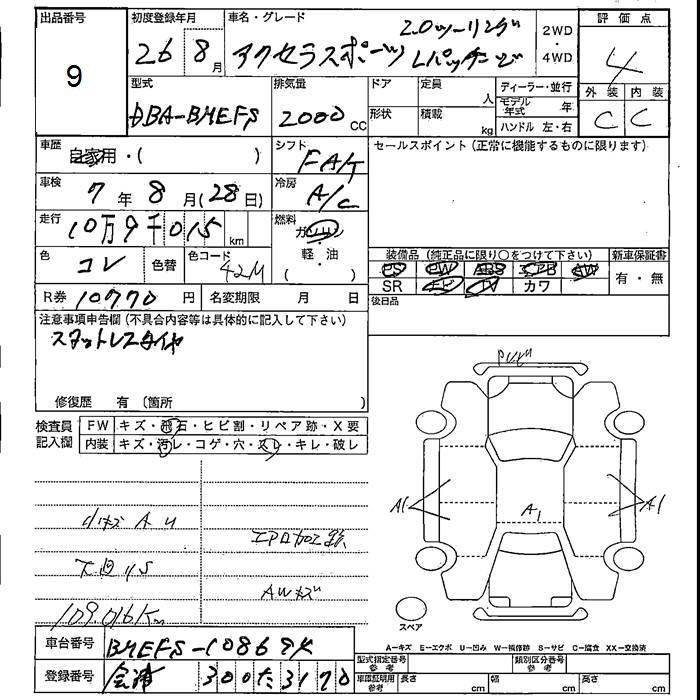 出品番号
9
初度登録年月
26 8月
車名・グレード
2.0ツーリング
アクセラスポーツ Lパッケージ
2WD
・
4WD
評価点
4
外装 内装
C C
型式
DBA-BMEFS
排気量
2000 CC
ドア
定員
人
形状
積載
kg
ディーラー・並行
モデル年式 年
ハンドル 左・右
車歴
自家用・( )
シフト
FAT
セールスポイント (正常に機能するものに限ります)
車検
7年 8月(28日)
冷房
A/C
走行
10万9千015 km
燃料
ガソリン
軽・油
( )
色
コン
色替
色コード
42M
装備品 (純正品に限り○をつけて下さい)
新車保証書
PS PW ABS エアB AW
SR ナビ TV カワ
有・無
R券 10770 円
名変期限 月 日
後日品
注意事項申告欄 (不具合内容等は具体的に記入して下さい)
スタットレスタイヤ
修復歴 有 (箇所 )
検査員記入欄
FW キズ・飛石・ヒビ割・リペア跡・X要
内装 キズ・汚レ・コゲ・穴・スレ・キレ・破レ
小キズ A U
エアロ加工跡
下回りS
AWキズ
109.016Km
A1
A1
A1
スペア
A-キズ E-エクボ U-凹み W-補修跡 S-サビ C-腐食 XX-交換済
車台番号 BMEFS-108694
登録番号 会津 300 た 3170
型式指定番号 参考
類別区分番号 参考
車庫証明用 参考
長さ cm
幅 cm
高さ cm